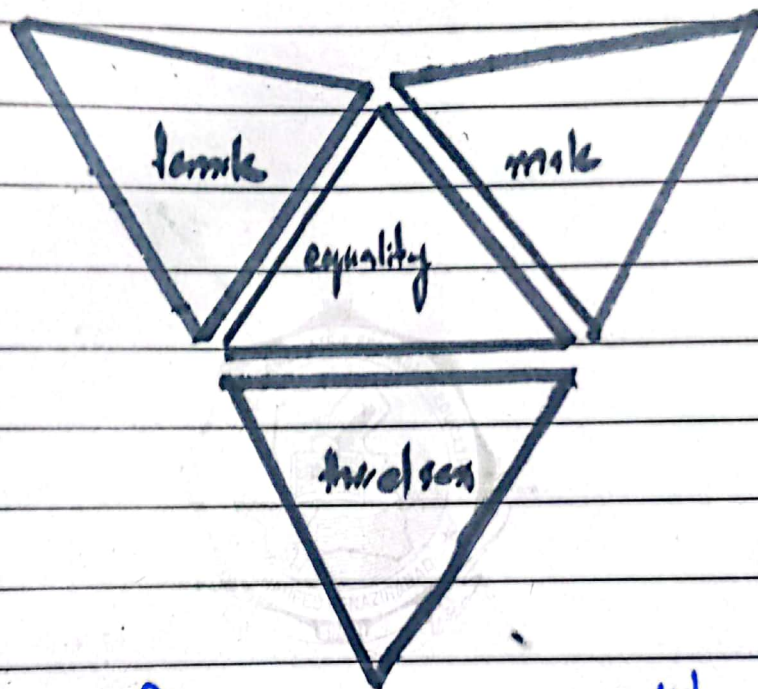 female
male
equality
third sex